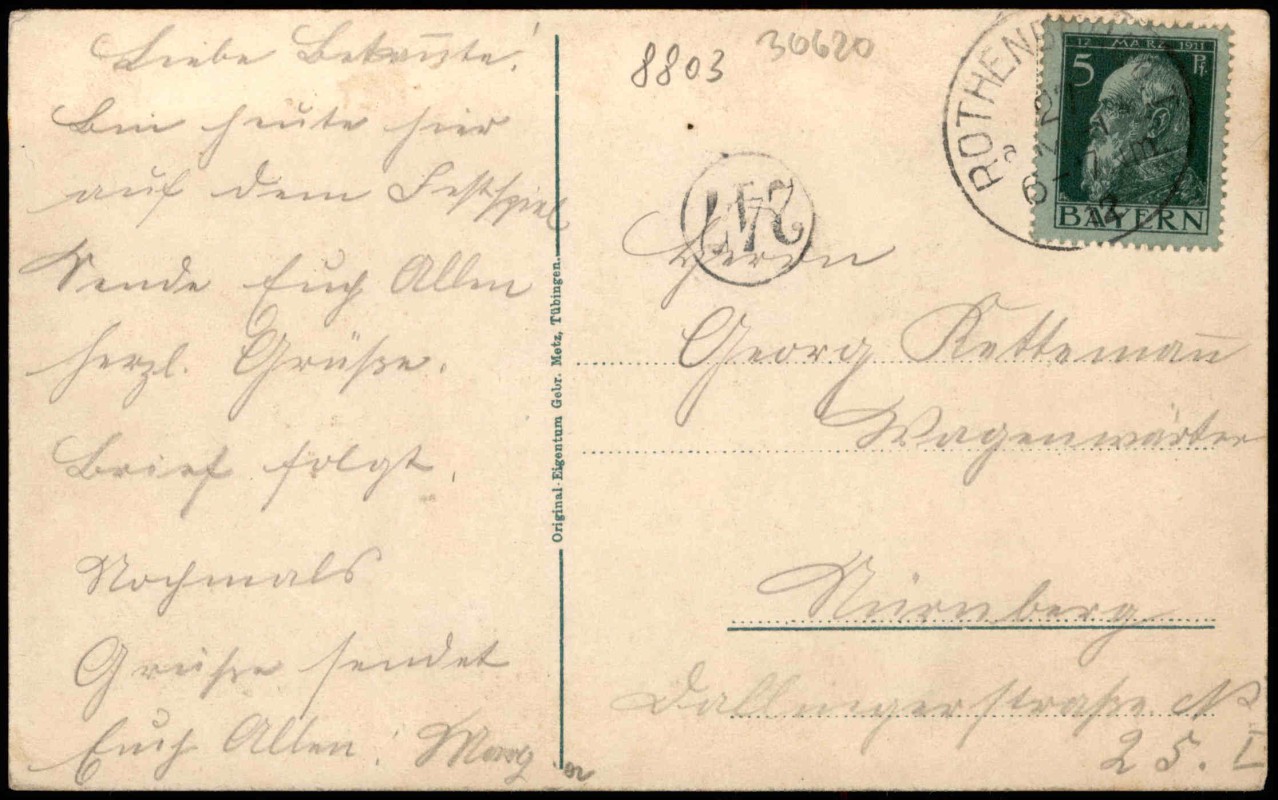 Liebe Bekan̄te!
Bin heute hier
auf dem Festspiel
Sende Euch Allen
herzl. Grüße.
Brief folgt.
Nochmals
Grüße sendet
Euch Allen:
Original-Eigentum Gebr. Metz, Tübingen.
8803
30620
ROTHENB
12. MÄRZ 1911
5 Pf.
BAYERN
Herrn
Georg Ketteman̄
Wagenwärter
Nürnberg
Dallingerstraße No
25. I